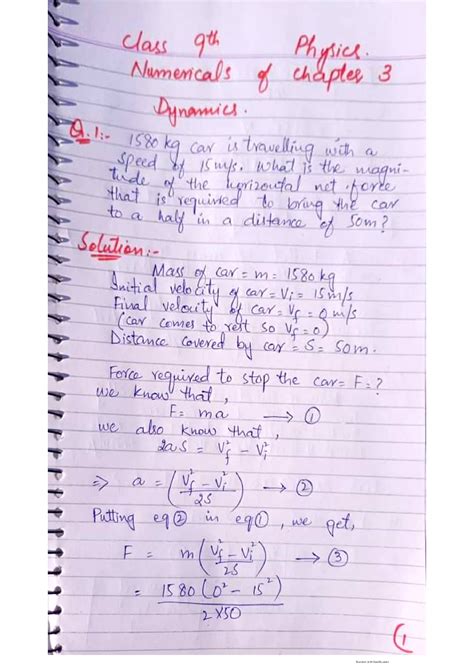 Class 9th Physics.
Numericals of chapter 3
Dynamics.
Q.1:- 1580 kg car is travelling with a
speed of 15m/s. What is the magni-
tude of the horizontal net force
that is required to bring the car
to a half in a distance of 50m?
Solution:-
Mass of car = m = 1580 kg
Initial velocity of car = Vi = 15m/s
Final velocity of car = Vf = 0 m/s
(car comes to rest so Vf = 0)
Distance covered by car = S = 50m.
Force required to stop the car = F = ?
we know that,
F = ma → ①
we also know that,
2aS = Vf² - Vi²
⇒ a = (Vf² - Vi² / 2S) → ②
Putting eq ② in eq ①, we get,
F = m (Vf² - Vi² / 2S) → ③
= 1580 (0² - 15²) / 2×50
(1